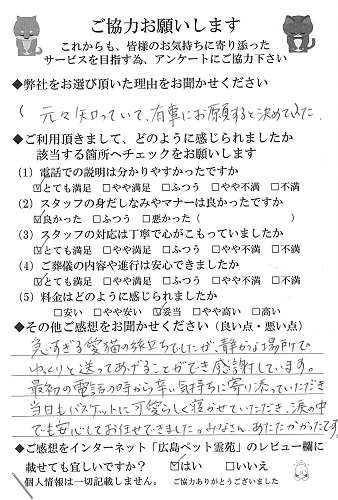 ご協力お願いします
これからも、皆様のお気持ちに寄り添った
サービスを目指す為、アンケートにご協力下さい
◆弊社をお選び頂いた理由をお聞かせください
( 元々知っていて、有事にお願すると決めていた。
◆ご利用頂きまして、どのように感じられましたか
該当する箇所へチェックをお願いします
(1) 電話での説明は分かりやすかったですか
☑とても満足 □やや満足 □ふつう □やや不満 □不満
(2) スタッフの身だしなみやマナーは良かったですか
☑良かった □ふつう □悪かった ( )
(3) スタッフの対応は丁寧で心がこもっていましたか
☑とても満足 □やや満足 □ふつう □やや不満 □不満
(4) ご葬儀の内容や進行は安心できましたか
☑とても満足 □やや満足 □ふつう □やや不満 □不満
(5) 料金はどのように感じられましたか
□安い □やや安い ☑妥当 □やや高い □高い
◆その他ご感想をお聞かせください (良い点・悪い点)
急すぎる愛猫の旅立ちでしたが、静かな場所で
ゆっくりと送ってあげることができ感謝しています。
最初の電話の時から辛い気持ちに寄り添っていただき
当日もバスケットに可愛らしく寝かせていただき、涙の中
でも安心してお任せできました。みなさん、あたたかかったです。
◆ご感想をインターネット「広島ペット霊苑」のレビュー欄に
載せても宜しいですか? ☑はい □いいえ
個人情報は一切記載しません。 ご協力ありがとうございました